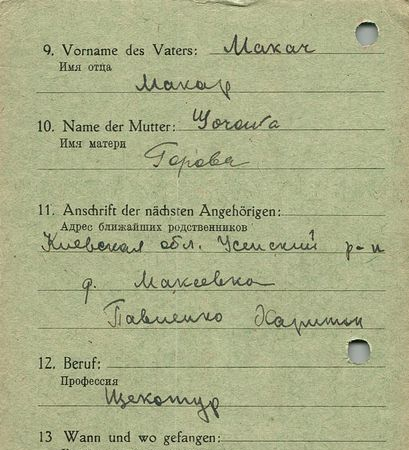 9. Vorname des Vaters: Макач
Имя отца
Макар
10. Name der Mutter:
Имя матери
Горова
11. Anschrift der nächsten Angehörigen:
Адрес ближайших родственников
Киевская обл. р-н
д. Максевка
Павленко Харитон
12. Beruf:
Профессия
Щекотур
13 Wann und wo gefangen: